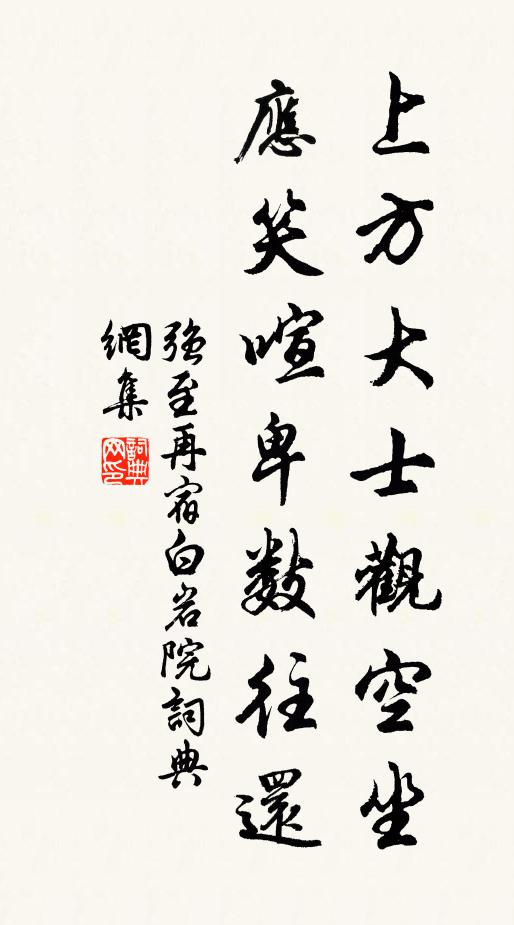 上方大士觀空坐
應笑喧卑数往還
強至再宿白岩院詞典
網集
詞典網印